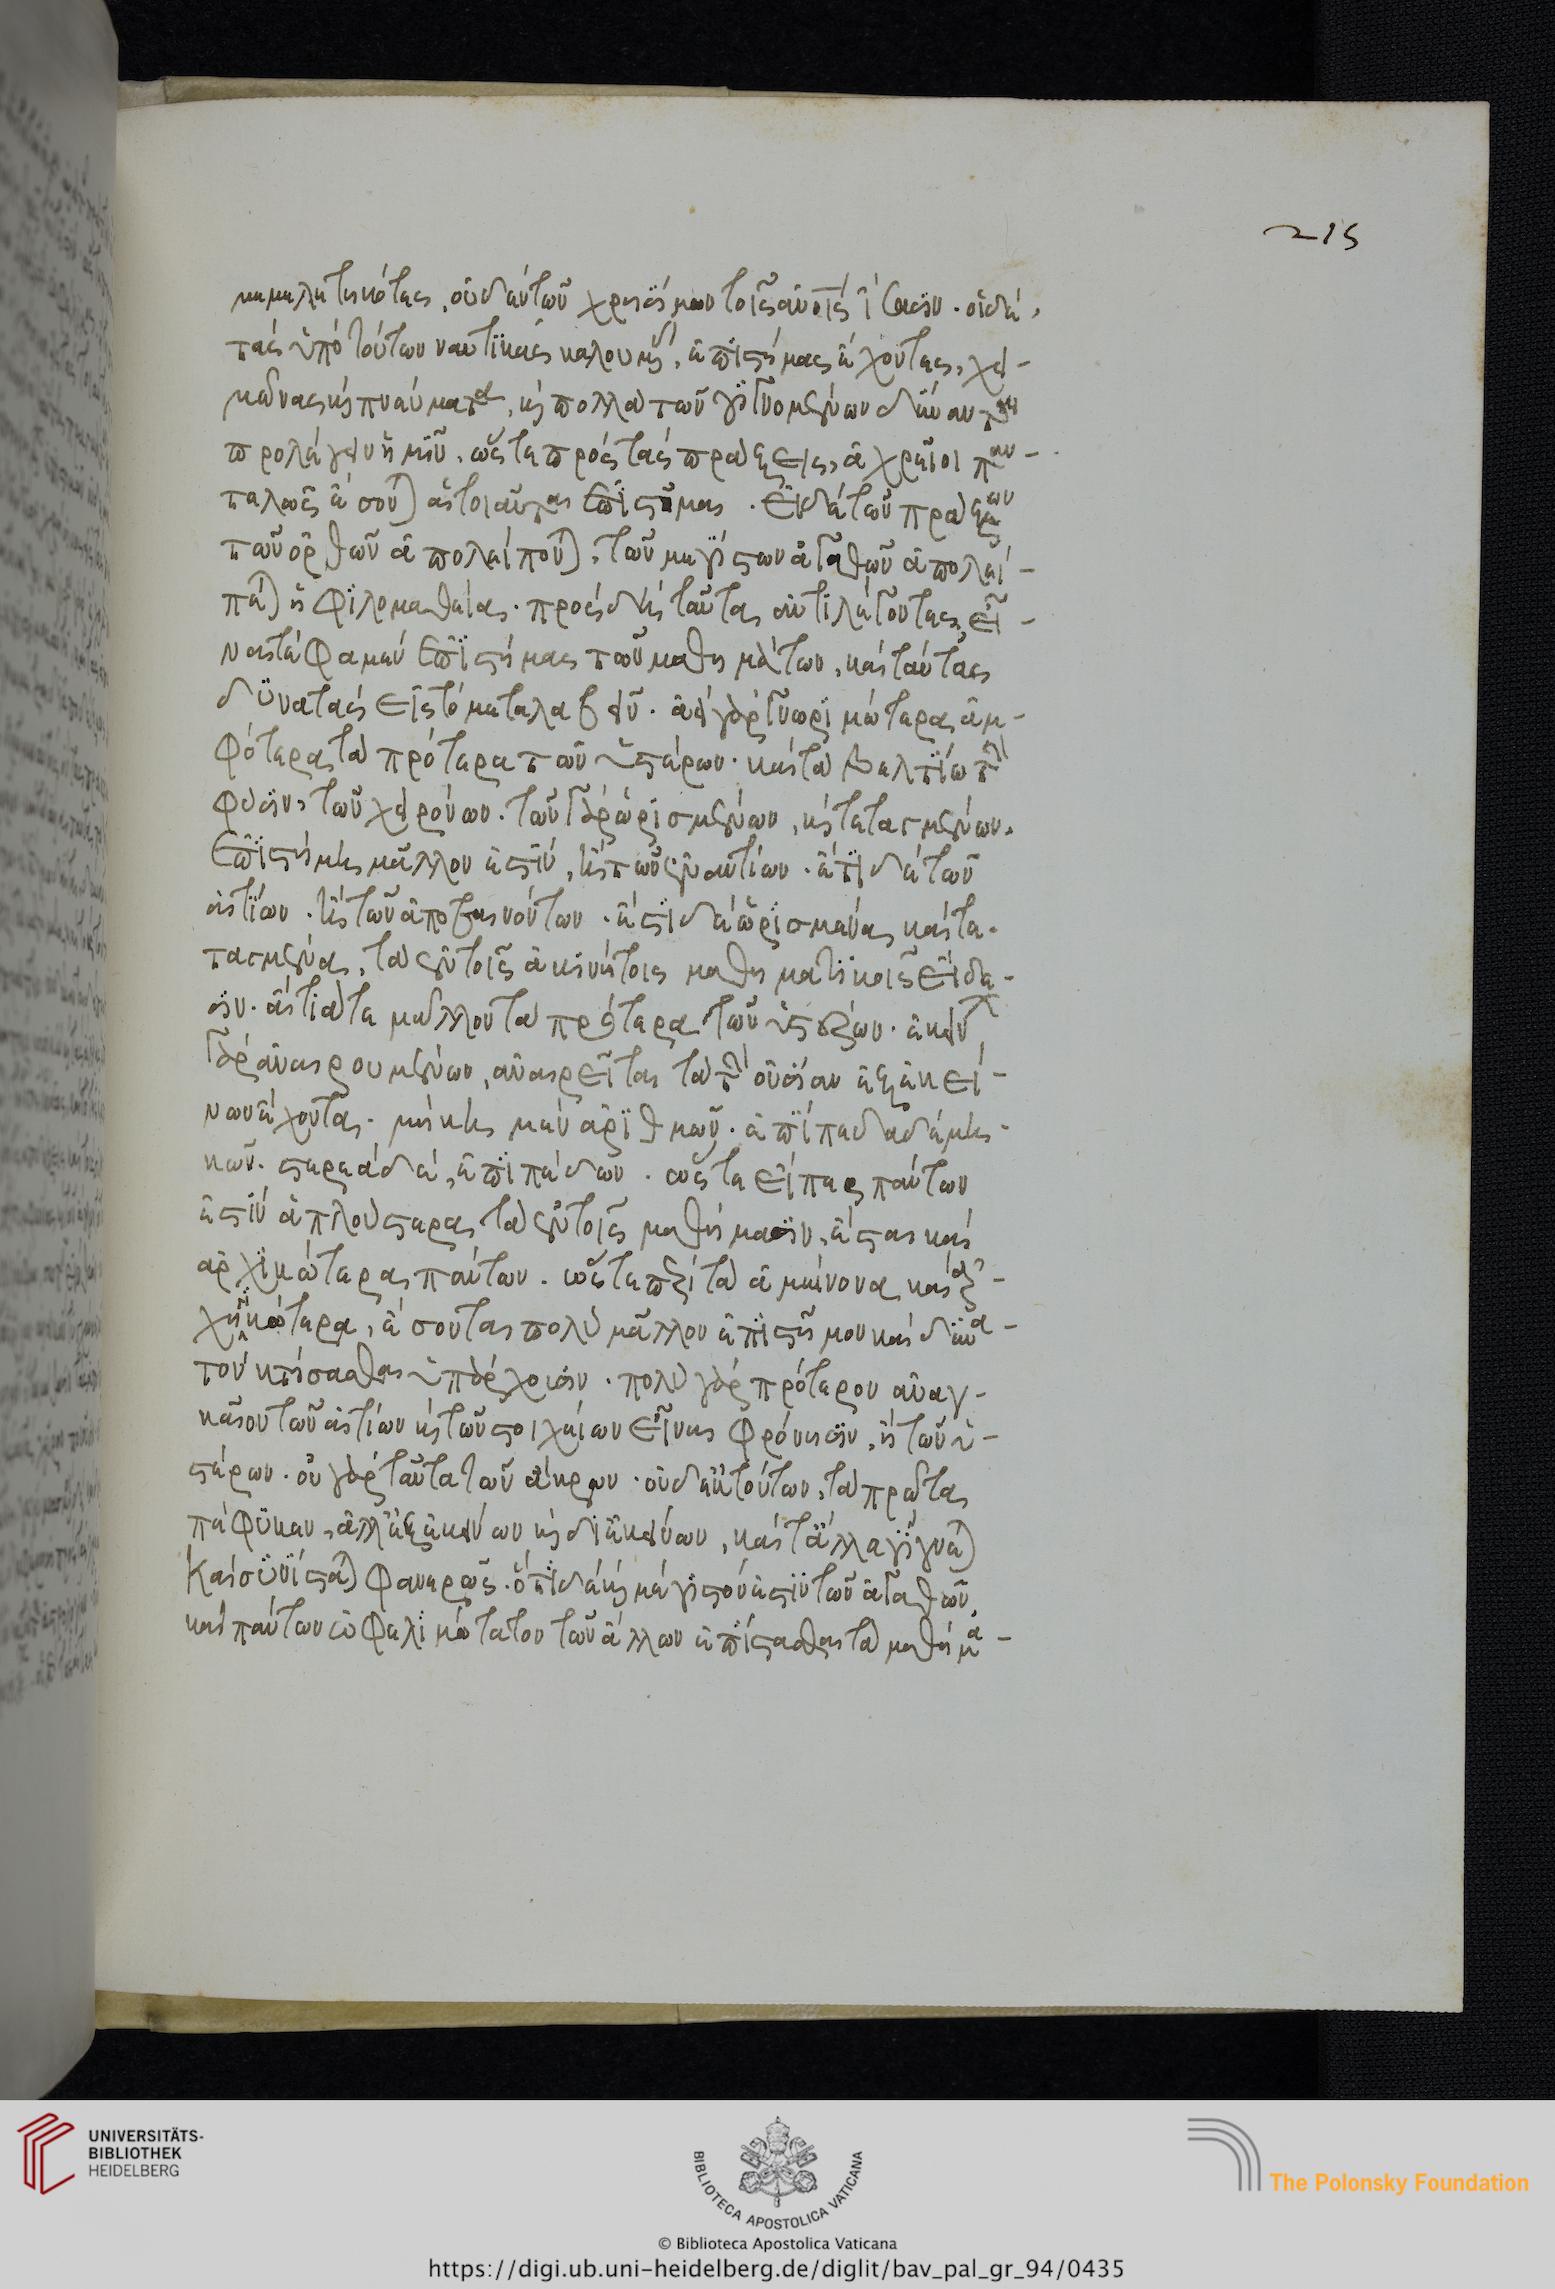 μεμελετηκότες, οὐδὲν τῶν χρησίμων τοῖς ἀν(οις) ἴσασιν. οἱ δὲ
τὰς ὑπὸ τούτων ναυτικὰς καλουμ(ένας), ἐπιστήμας ἔχοντες, χει-
μῶνας καὶ πνεύματα, καὶ πολλὰ τῶν γιγνομένων δύναντ
προλέγειν ἡμῖν. ὥστε πρὸς τὰς πράξεις, ἀχρεῖοι παν-
τελῶς ἔσονται αἱ τοιαῦται ἐπιστῆμαι. εἰ δὲ τῶν πράξεων
τῶν ὀρθῶν ἀπολείπονται, τῶν μεγίστων ἀγαθῶν ἀπολεί-
πεται ἡ φιλομαθεία. πρὸς δὴ ταῦτα ἀντιλέγοντες, εἶ-
ναι τέ φαμεν ἐπιστήμας τῶν μαθημάτων, καὶ ταύτας
δυνατὰς εἰς τὸ μεταλαβεῖν. ἀεὶ γὰρ γνωριμώτερα ἀμ-
φότερα τὰ πρότερα τῶν ὑστέρων. καὶ τὰ βελτίω τὴν
φύσιν, τῶν χειρόνων. τῶν γὰρ ὡρισμένων, καὶ τεταγμένων,
ἐπιστήμη μᾶλλον ἐστὶν, ἢ τῶν ἐναντίων. ἔτι δὲ τῶν
αἰτίων. ἢ τῶν ἀποβαινόντων. ἔστι δὲ ὡρισμένα, καὶ τε-
ταγμένα, τὰ ἐν τοῖς ἀκινήτοις μαθηματικοῖς εἴδε-
σιν. αἴτιά τε μᾶλλον τὰ πρότερα τῶν ὑστέρων. ἐκείνων
γὰρ ἀναιρουμένων, ἀναιρεῖται τὰ τὴν οὐσίαν ἐξ ἐκεί-
νων ἔχοντα. μήκη μὲν ἀριθμῶν. ἐπίπεδα δὲ μη-
κῶν. στερεὰ δὲ, ἐπιπέδων. ὥστε εἴπερ πάντων
ἐστὶν ἁπλούστερα τὰ ἐν τοῖς μαθήμασιν, ἔσται καὶ
ἀρχικώτερα πάντων. ὥστε περὶ τὰ ἀμείνονα, καὶ ἀρ-
χηϊκώτερα, ἔσονται πολὺ μᾶλλον ἐπιστήμον καὶ δυνα-
τὸν κτήσασθαι ὑπάρχοισιν. πολὺ γὰρ πρότερον ἀναγ-
καῖον τῶν αἰτίων καὶ τῶν στοιχείων εἶναι φρόνησιν, ἢ τῶν ὑ-
στέρων. οὐ γὰρ ταῦτα τῶν ἄκρων. οὐδ' ἐκ τούτων, τὰ πρῶτα
πέφυκεν, ἀλλ' ἐξ ἐκείνων καὶ δι' ἐκείνων, καὶ τἄλλα γίγνεται
καὶ συνίσταται φανερῶς. ὅτι δὲ καὶ μέγιστόν ἐστιν τῶν ἀγαθῶν,
καὶ πάντων ὠφελιμώτατον τῶν ἄλλων ἐπίστασθαι τὰ μαθήμα-
UNIVERSITÄTS-
BIBLIOTHEK
HEIDELBERG
BIBLIOTECA APOSTOLICA VATICANA
The Polonsky Foundation
© Biblioteca Apostolica Vaticana
https://digi.ub.uni-heidelberg.de/diglit/bav_pal_gr_94/0435